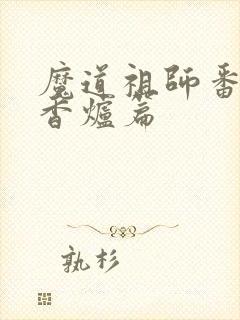 魔道祖師番
香爐篇
孰杉